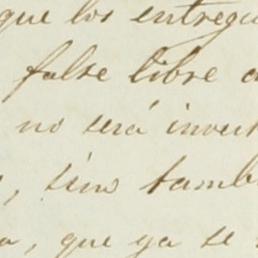 que los entregu
false libre
no será invest
, sino tamb
, que ya se